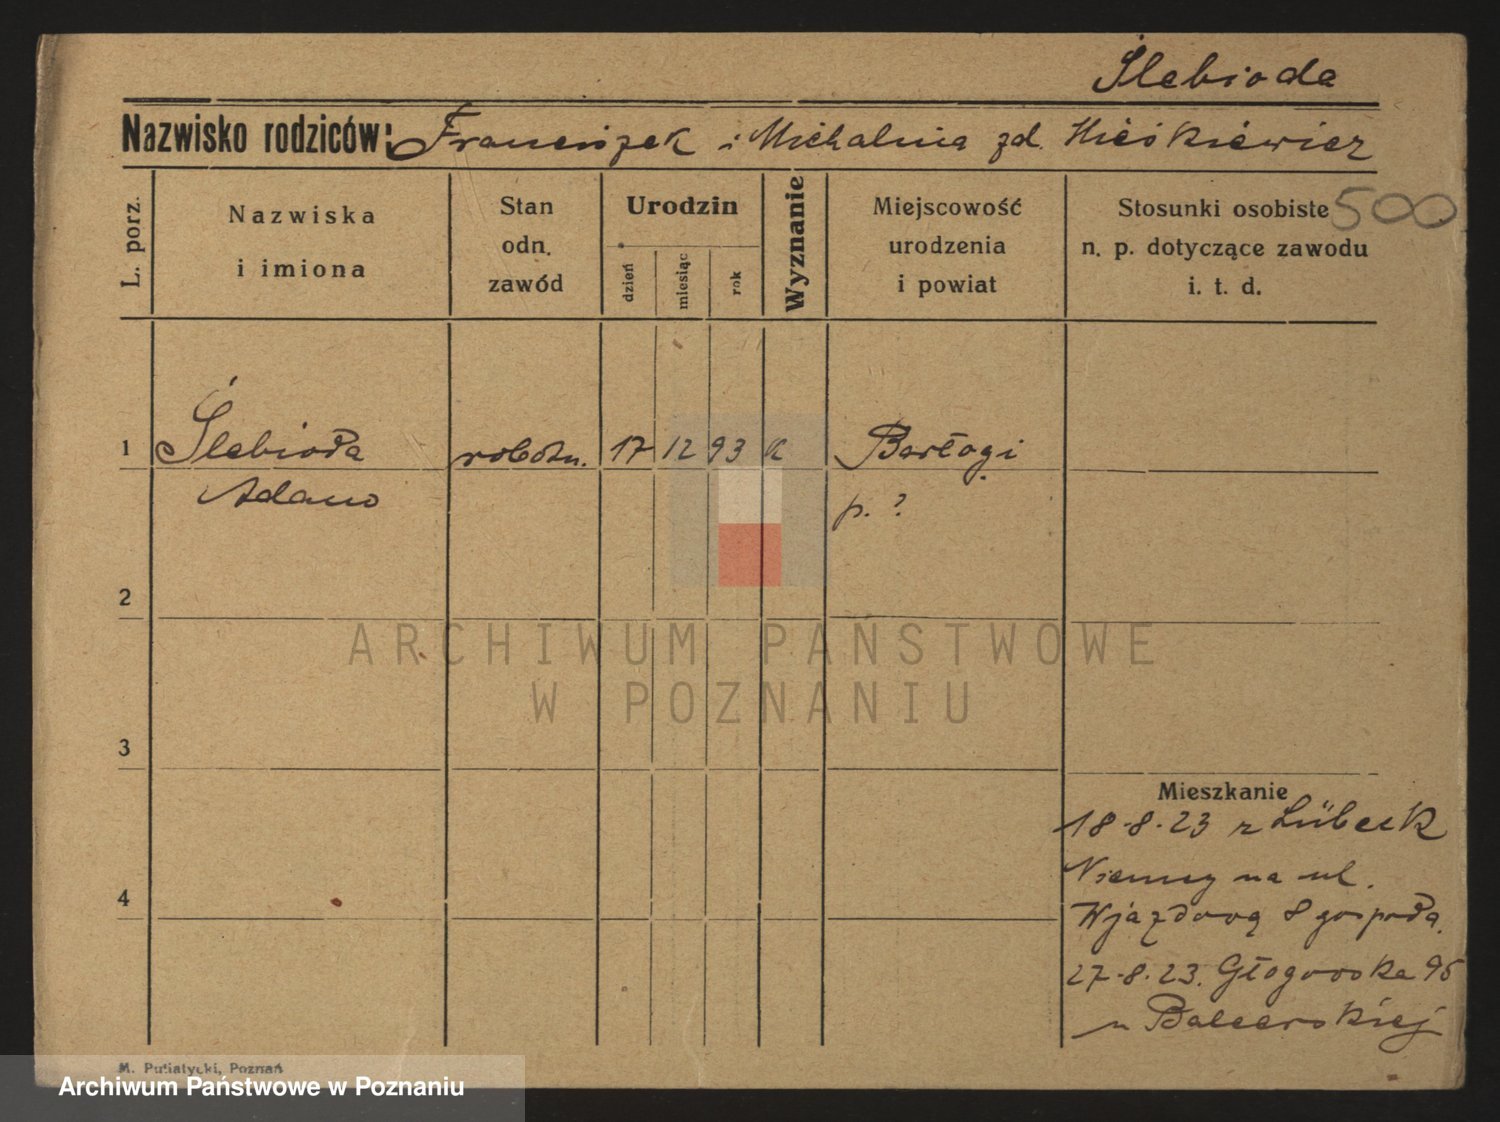 Ślebioda
Nazwisko rodziców: Franciszek i Michalina zd.
L. porz.
Nazwiska
i imiona
Stan
odn.
zawód
Urodzin
dzień
miesiąc
rok
Wyznanie
Miejscowość
urodzenia
i powiat
Stosunki osobiste 500
n. p. dotyczące zawodu
i. t. d.
1 Ślebioda robotn. 17 12 93 K Barłogi
Adam p. ?
2
3
Mieszkanie
18-8-23 z Lübeck
Niemcy na ul.
4
Wjazdową 8 gospoda.
27-8-23. Głogowska 96
u Balcerskiej
M. Putiatycki, Poznań
ARCHIWUM PAŃSTWOWE
W POZNANIU
Archiwum Państwowe w Poznaniu